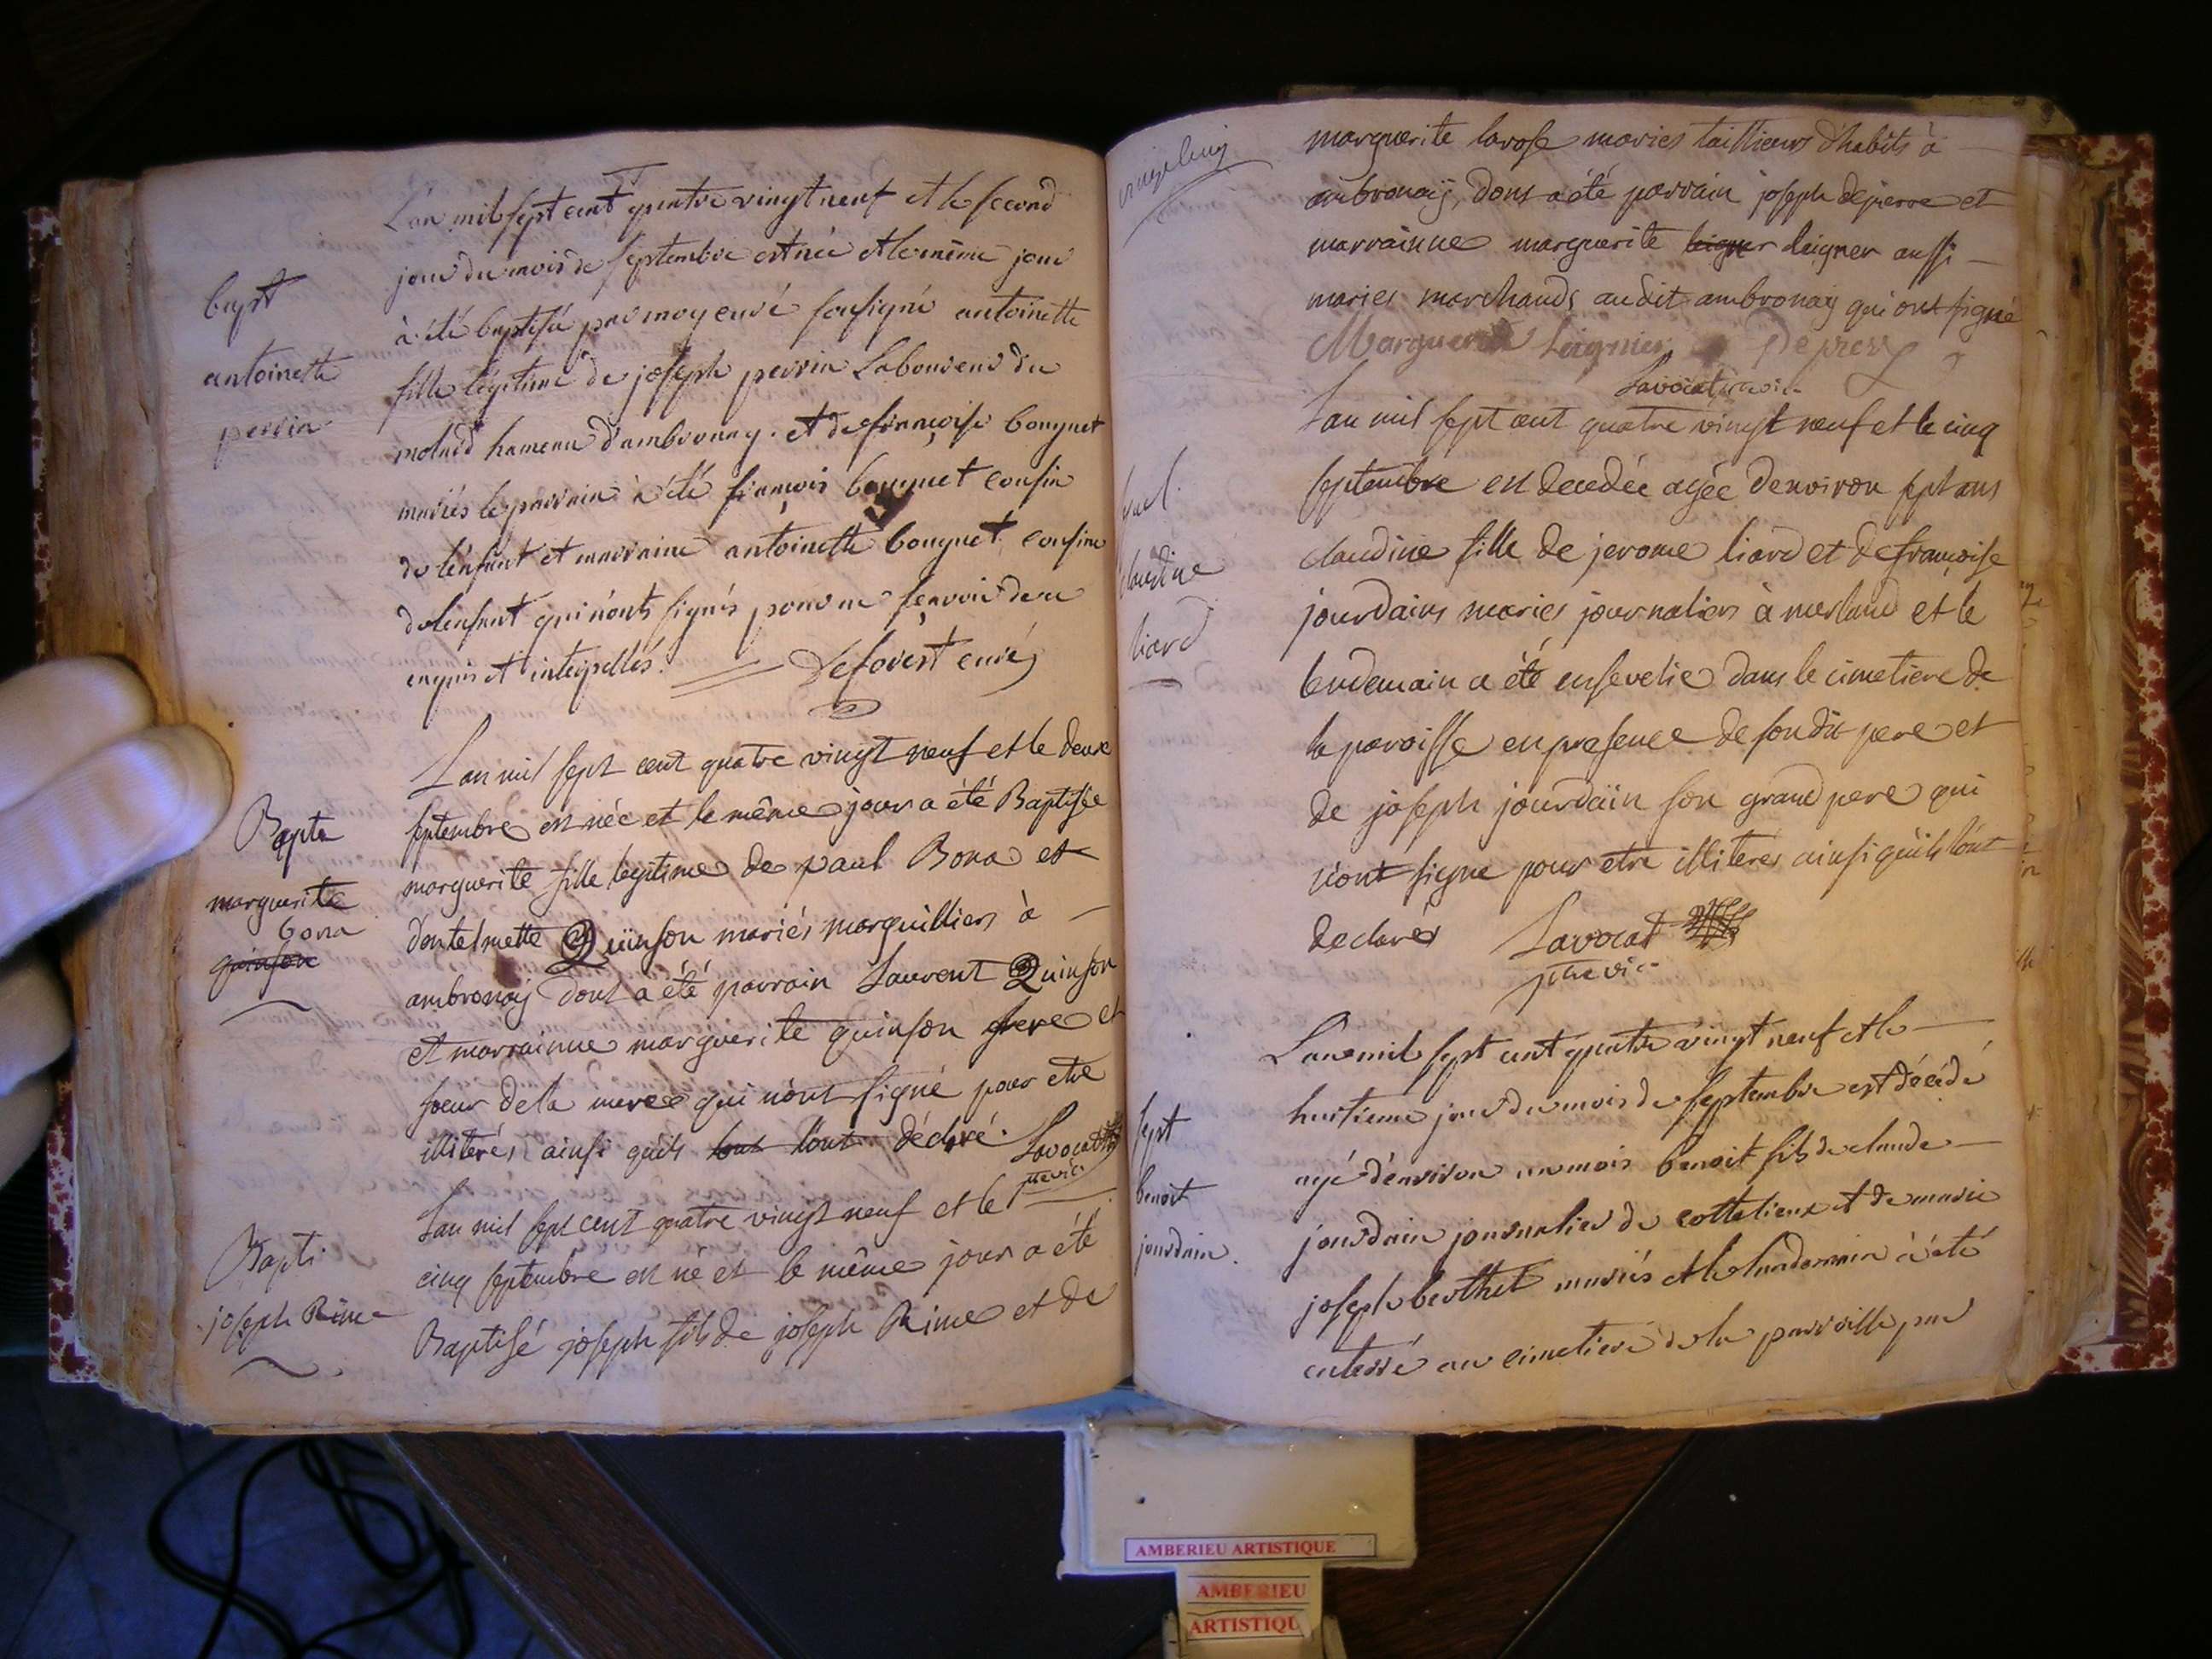 bapt
antoinette
perrin
L'an mil sept cent quatre vingt neuf et le second
jour du mois de septembre est née et le même jour
à été baptisée par moy curé sousigné antoinette
fille légitime de joseph perrin Laboureur du
molard hameau d'ambronay. et de françoise bouquet
mariés le parrain à été françois bouquet cousin
de l'enfant et marraine antoinette bouquet cousine
de lenfant qui n'onts signés pour ne sçavoir de ce
enquis et interpellés. Deforest curé
Bapte
marguerite
bona
quinson
L'an mil sept cent quatre vingt neuf et le deux
septembre en née et le même jour a été Baptisée
marguerite fille legitime de paul Bona et
dontelmette Quinson mariés marguilliers à
ambronay dont a été parrain Laurent Quinson
et marrainne marguerite quinson frere et
soeur de la mere qui n'ont signé pour etre
illiterés ainsi qu'ils lont l'ont déclaré. Lavocat
ptre vic
Bapti
joseph Rime
L'an mil sept cent quatre vingt neuf et le
cinq septembre en né et le même jour a été
Baptisé joseph fils de joseph Rime et de
marguerite larose maries taillieurs d'habits à
ambronaÿ, dont a été parrain joseph depierre et
marrainne marguerite leigner leigner aussi
maries marchands audit ambronay qui ont signé
Marguerite Leignier Depierre
Lavocat vic
L'an mil sept cent quatre vingt neuf et le cinq
septembre en decedée agée denviron sept ans
claudine fille de jerome liard et de françoise
jourdains maries journaliers à merland et le
lendemain a été ensevelie dans le cimetiere de
la paroisse en presence de son dit pere et
de joseph jourdain son grand pere qui
n'ont signe pour etre illiteres ainsi qu'ils l'ont
declarés Lavocat
ptre vic
claudine
liard
L'an mil sept cent quatre vingt neuf et le
huitieme jour du mois de septembre est décédé
agé d'environ un mois benoit fils de claude
jourdain journalier de cottelieux et de marie
joseph berthet mariés et le lendemain à été
enterré au cimetiere de la paroisse par
sept
benoit
jourdain.
AMBERIEU ARTISTIQUE
AMBERIEU
ARTISTIQU